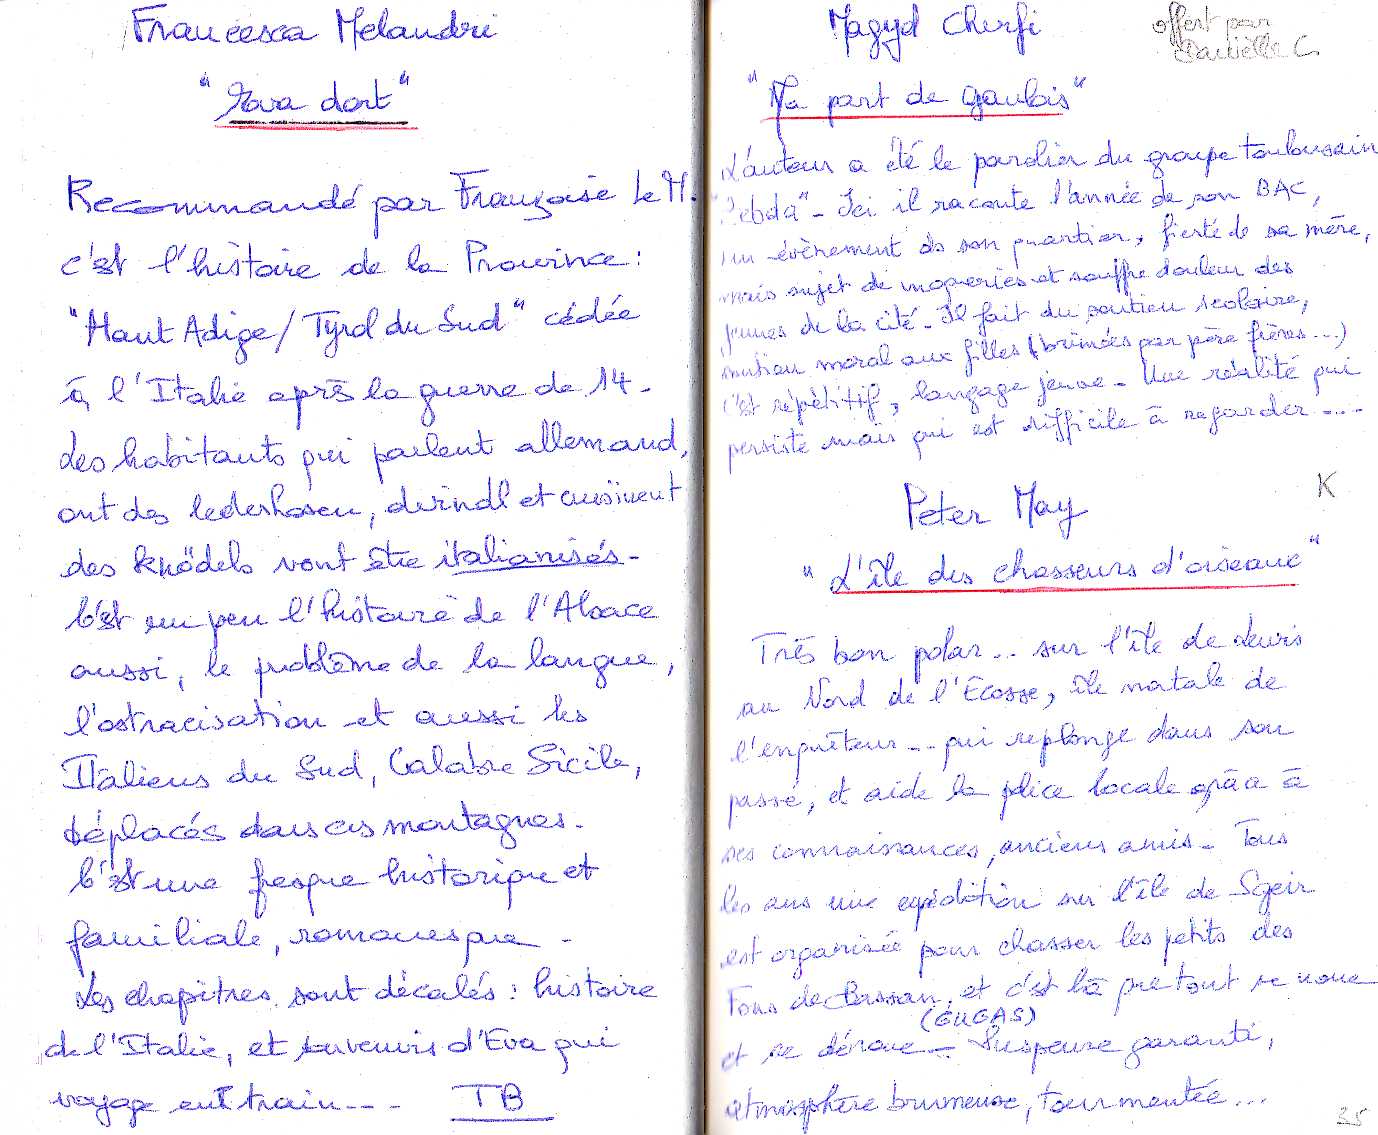 Francesca Melandri
"Eva dort"
Recommandé par Françoise Le M.
c'est l'histoire de la Province :
"Haut Adige/Tyrol du Sud" cédée
à l'Italie après la guerre de 14 -
Les habitants qui parlent allemand,
ont des lederhosen, dirndl et cuisinent
des knödels vont être italianisés -
C'est un peu l'histoire de l'Alsace
aussi, le problème de la langue,
l'ostracisation et aussi les
Italiens du Sud, Calabre Sicile,
déplacés dans ces montagnes -
C'est une fresque historique et
familiale, romanesque -
Les chapitres sont décalés : histoire
de l'Italie, et souvenirs d'Eva qui
voyage en train ---
TB
Magyd Cherfi
offert par
Danièlle C.
"Ma part de gaulois"
L'auteur a été le parolier du groupe toulousain
"Zebda" - Ici il raconte l'année de son BAC,
un évènement ds son quartier, fierté de sa mère,
mais sujet de moqueries et souffre douleur des
jeunes de la cité - Il fait du soutien scolaire,
soutien moral aux filles (brimées par père frères...)
C'est répétitif, langage jeune - Une réalité qui
persiste mais qui est difficile à regarder ....
Peter May
K
"L'île des chasseurs d'oiseaux"
Très bon polar... sur l'île de Lewis
au Nord de l'Ecosse, île natale de
l'enquêteur ... qui replonge dans son
passé, et aide la police locale grâce à
ses connaissances, anciens amis - Tous
les ans une expédition sur l'île de Sgeir
est organisée pour chasser les petits des
Fous de Bassan, et c'est là que tout se noue
(GUGAS)
et se dénoue - Suspense garanti,
atmosphère brumeuse, tourmentée...
35